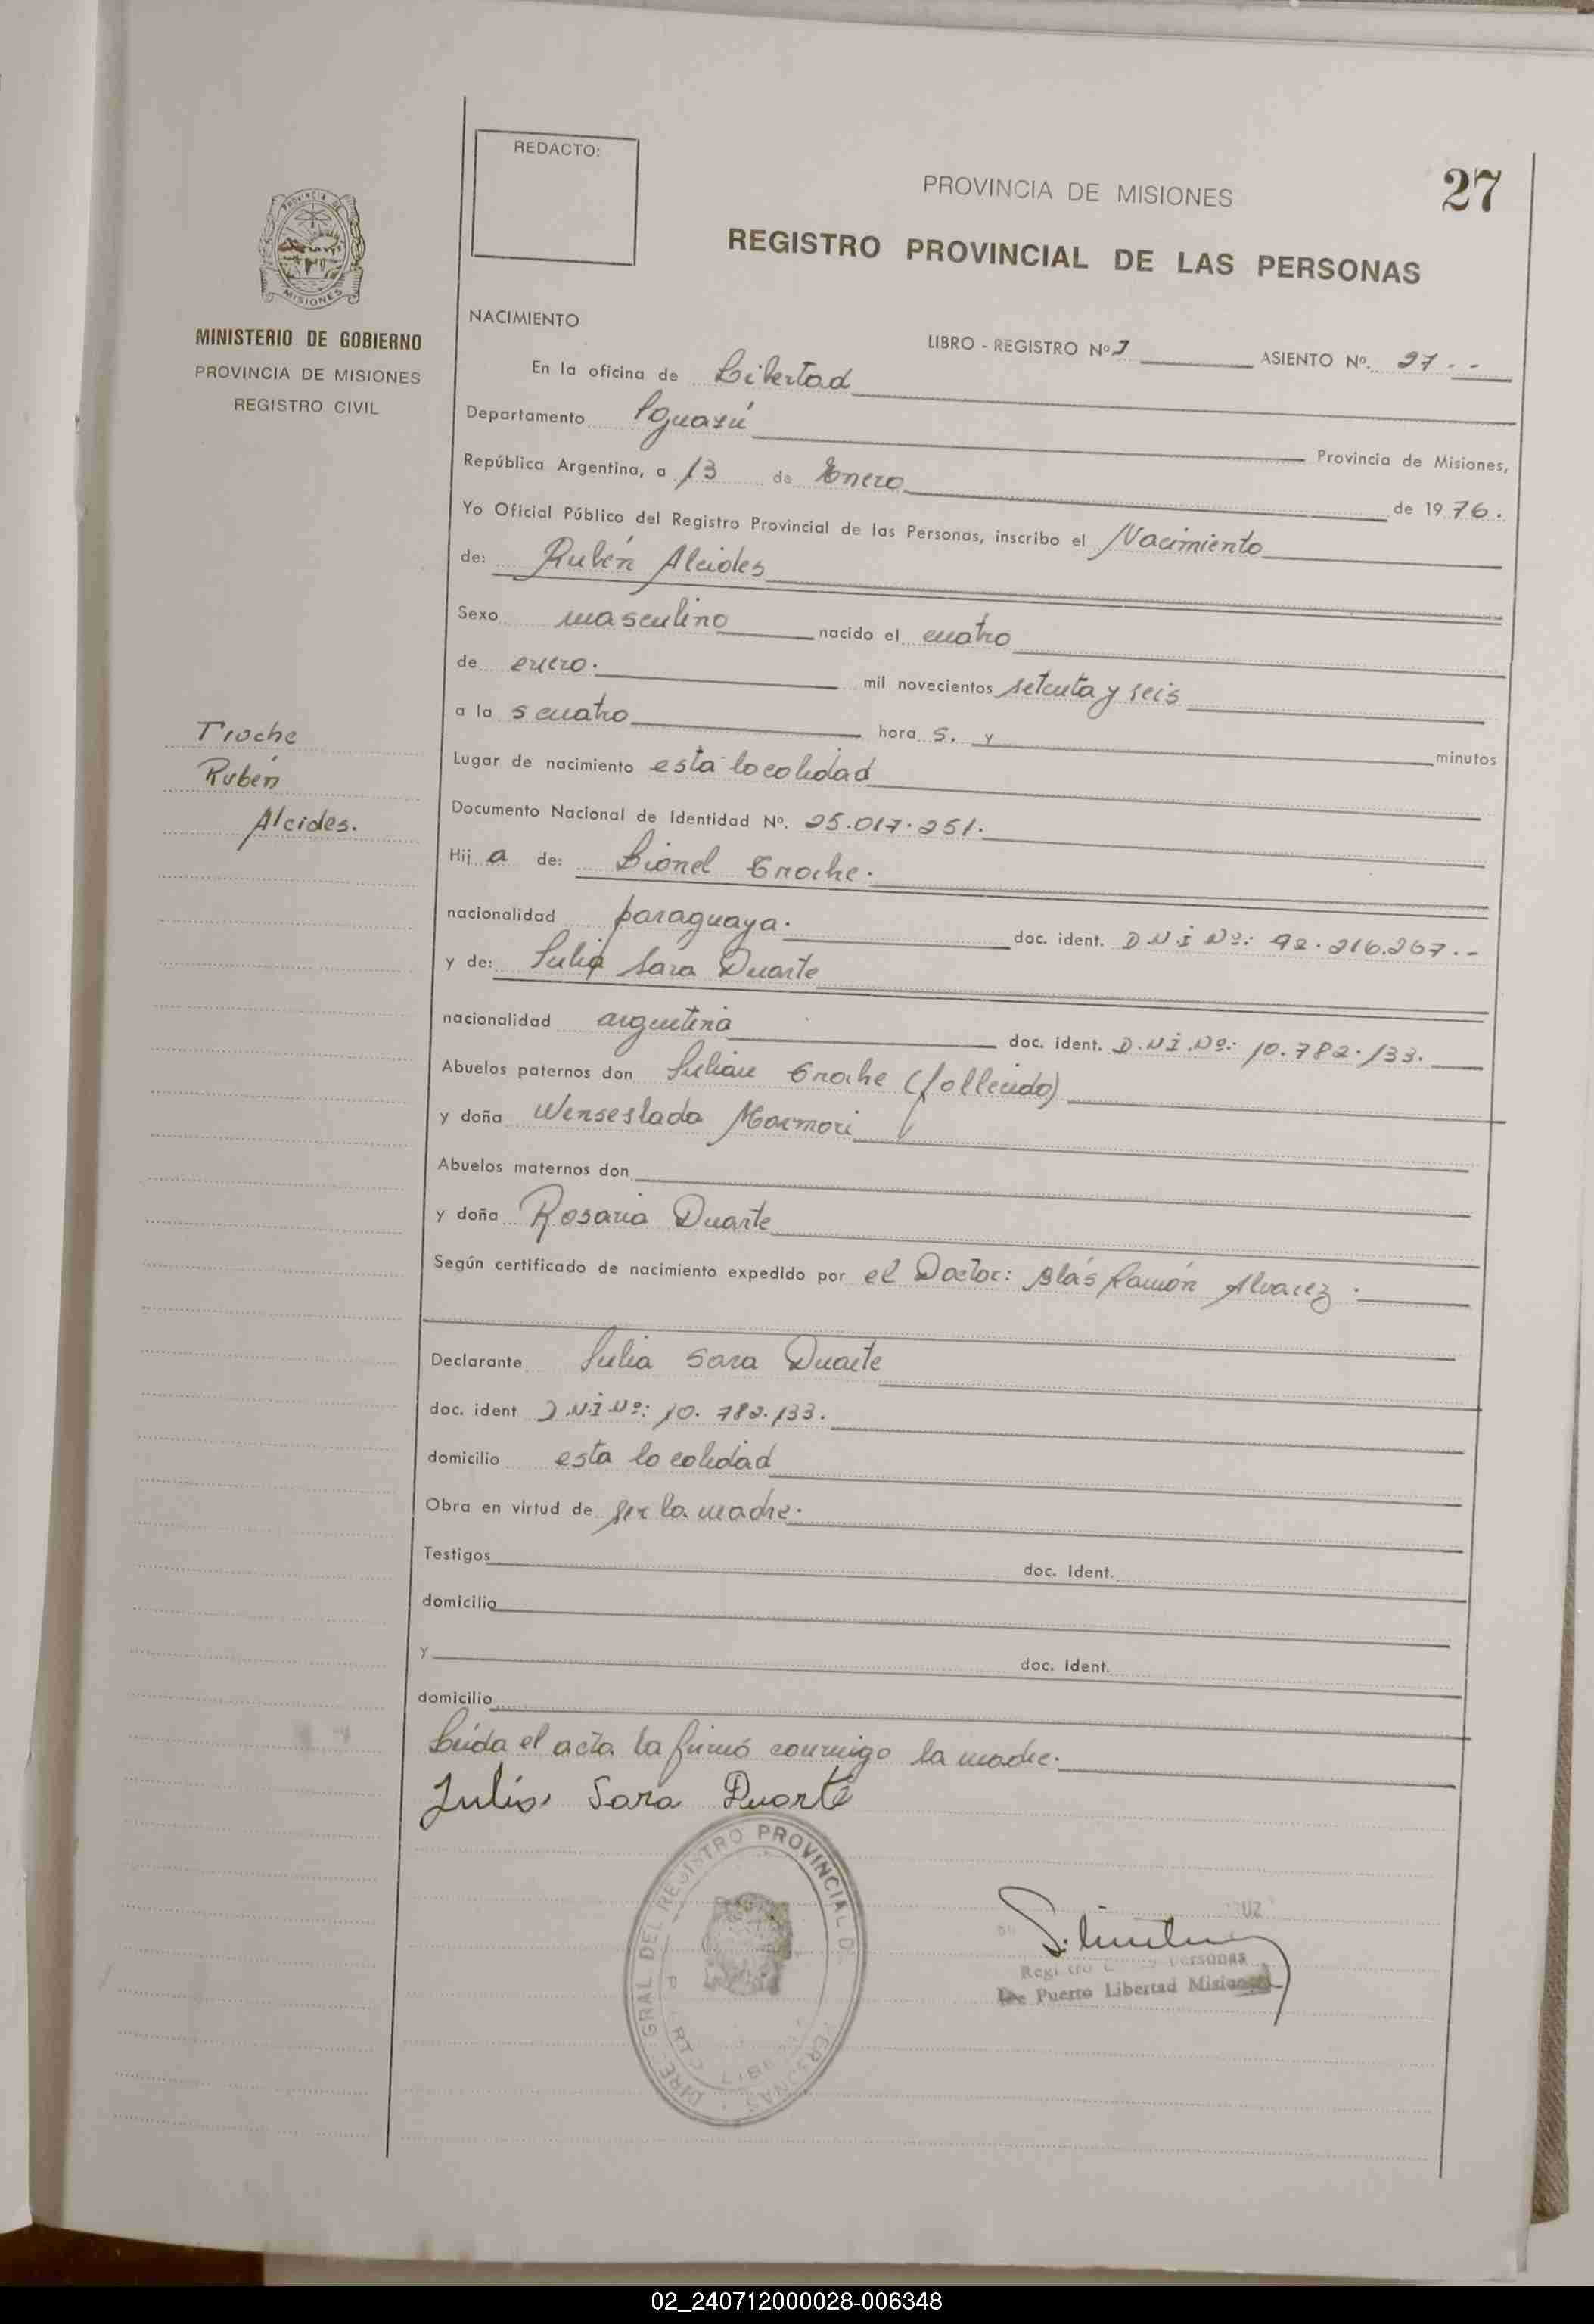 REDACTO:
PROVINCIA DE MISIONES
27
REGISTRO PROVINCIAL DE LAS PERSONAS
PROVINCIA DE
MISIONES
MINISTERIO DE GOBIERNO
PROVINCIA DE MISIONES
REGISTRO CIVIL
NACIMIENTO
LIBRO - REGISTRO Nº ASIENTO Nº. 27 - -
En la oficina de Libertad
Departamento Iguazú Provincia de Misiones,
República Argentina, a 13 de Enero de 19 76.
Yo Oficial Público del Registro Provincial de las Personas, inscribo el Nacimiento
de: Rubén Alcides
Sexo masculino nacido el cuatro
de enero. mil novecientos setenta y seis
a la s cuatro hora s. y minutos
Troche
Rubén
Alcides.
Lugar de nacimiento esta localidad
Documento Nacional de Identidad Nº. 25.017.251.
Hij a de: Lionel Troche.
nacionalidad paraguaya. doc. ident. D.N.I Nº: 92.216.267.-
y de: Julia Sara Duarte
nacionalidad argentina doc. ident. D.N.I.Nº: 10.782.133.
Abuelos paternos don Julian Troche (fallecido)
y doña Wenseslada Marmori
Abuelos maternos don
y doña Rosaria Duarte
Según certificado de nacimiento expedido por el Doctor: Blás Ramón Alvarez.
Declarante Julia Sara Duarte
doc. ident D.N.I.Nº: 10.782.133.
domicilio esta localidad
Obra en virtud de ser la madre.
Testigos doc. Ident.
domicilio
y doc. Ident.
domicilio
Leida el acta la firmó conmigo la madre.
Julia Sara Duarte
GRAL DEL REGISTRO PROVINCIAL D PERSONAS
UZ
Personas
De Puerto Libertad Misiones
02_240712000028-006348